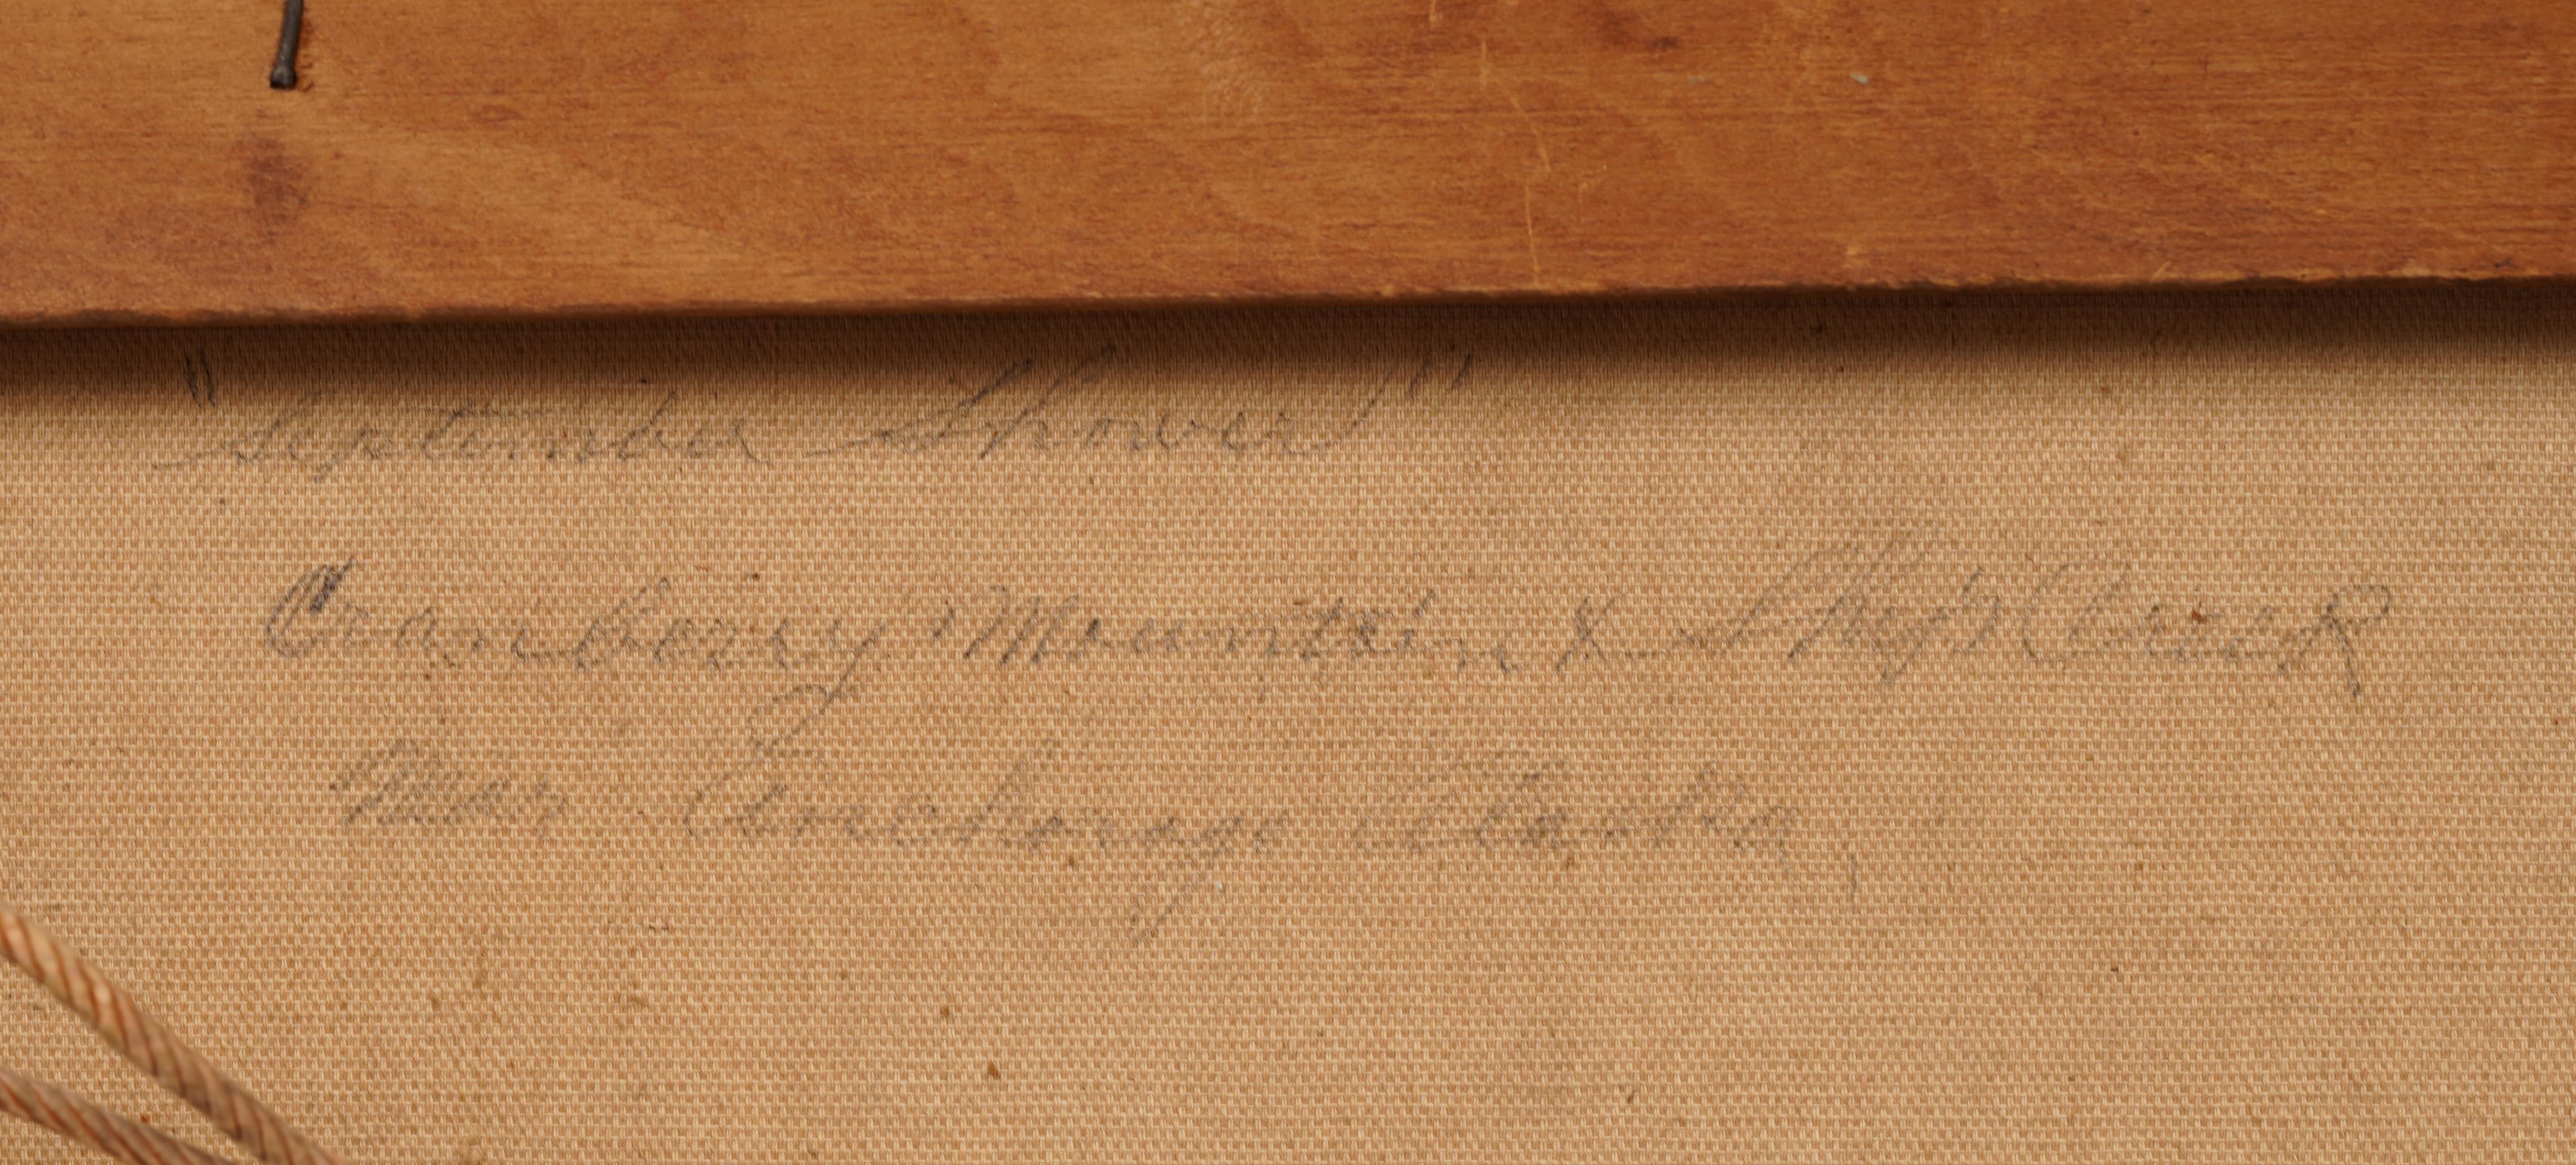 "September Shower"
Cranberry Mountain & Ship Creek
Near Anchorage Alaska,